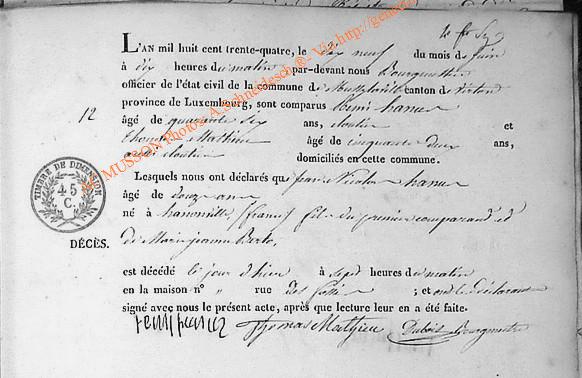 L'AN mil huit cent trente-quatre, le dix neuf du mois de juin
à dix heures du matin par-devant nous Bourguemestre
officier de l'état civil de la commune de canton de Virton
province de Luxembourg, sont comparus henri hanus
12
âgé de quarante six ans, cloutier et
thomas Mathieu âgé de cinquante deux ans,
aussi cloutier domiciliés en cette commune.
Lesquels nous ont déclarés que jean Nicolas hanus
âgé de douze ans
né à hanonville (france) fils du premier comparant et
de Marie jeanne
TIMBRE DE DIMENSION
45
C.
DÉCÈS.
est décédé le jour d'hier à sept heures du matin
en la maison n° " rue des fossés ; et ont les déclarants
signé avec nous le présent acte, après que lecture leur en a été faite.
henri hanus Thomas Mathieu Dubois Bourgmestre
MUSSON Photos A. Schneidesch ® - Via http://gen